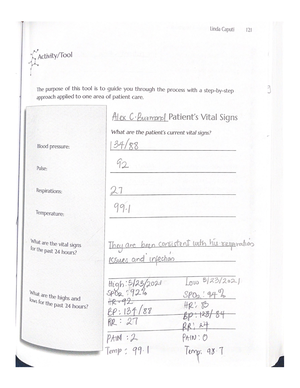 Linda Caputi 121
Activity/Tool
The purpose of this tool is to guide you through the process with a step-by-step
approach applied to one area of patient care.
Alex C. Patient's Vital Signs
What are the patient's current vital signs?
Blood pressure: 134/88
Pulse: 92
Respirations: 27
Temperature: 99.1
What are the vital signs
for the past 24 hours?
They are been consistent with his respiration
issues and infection
What are the highs and
lows for the past 24 hours?
High: 5/23/2021 Low 5/23/2021
SPO2: 92% SPO2: 94%
HR: 92 HR:
BP: 134/88 BP: /84
RR: 27 RR: 24
PAIN: 2 PAIN: 0
Temp: 99.1 Temp: 98.7